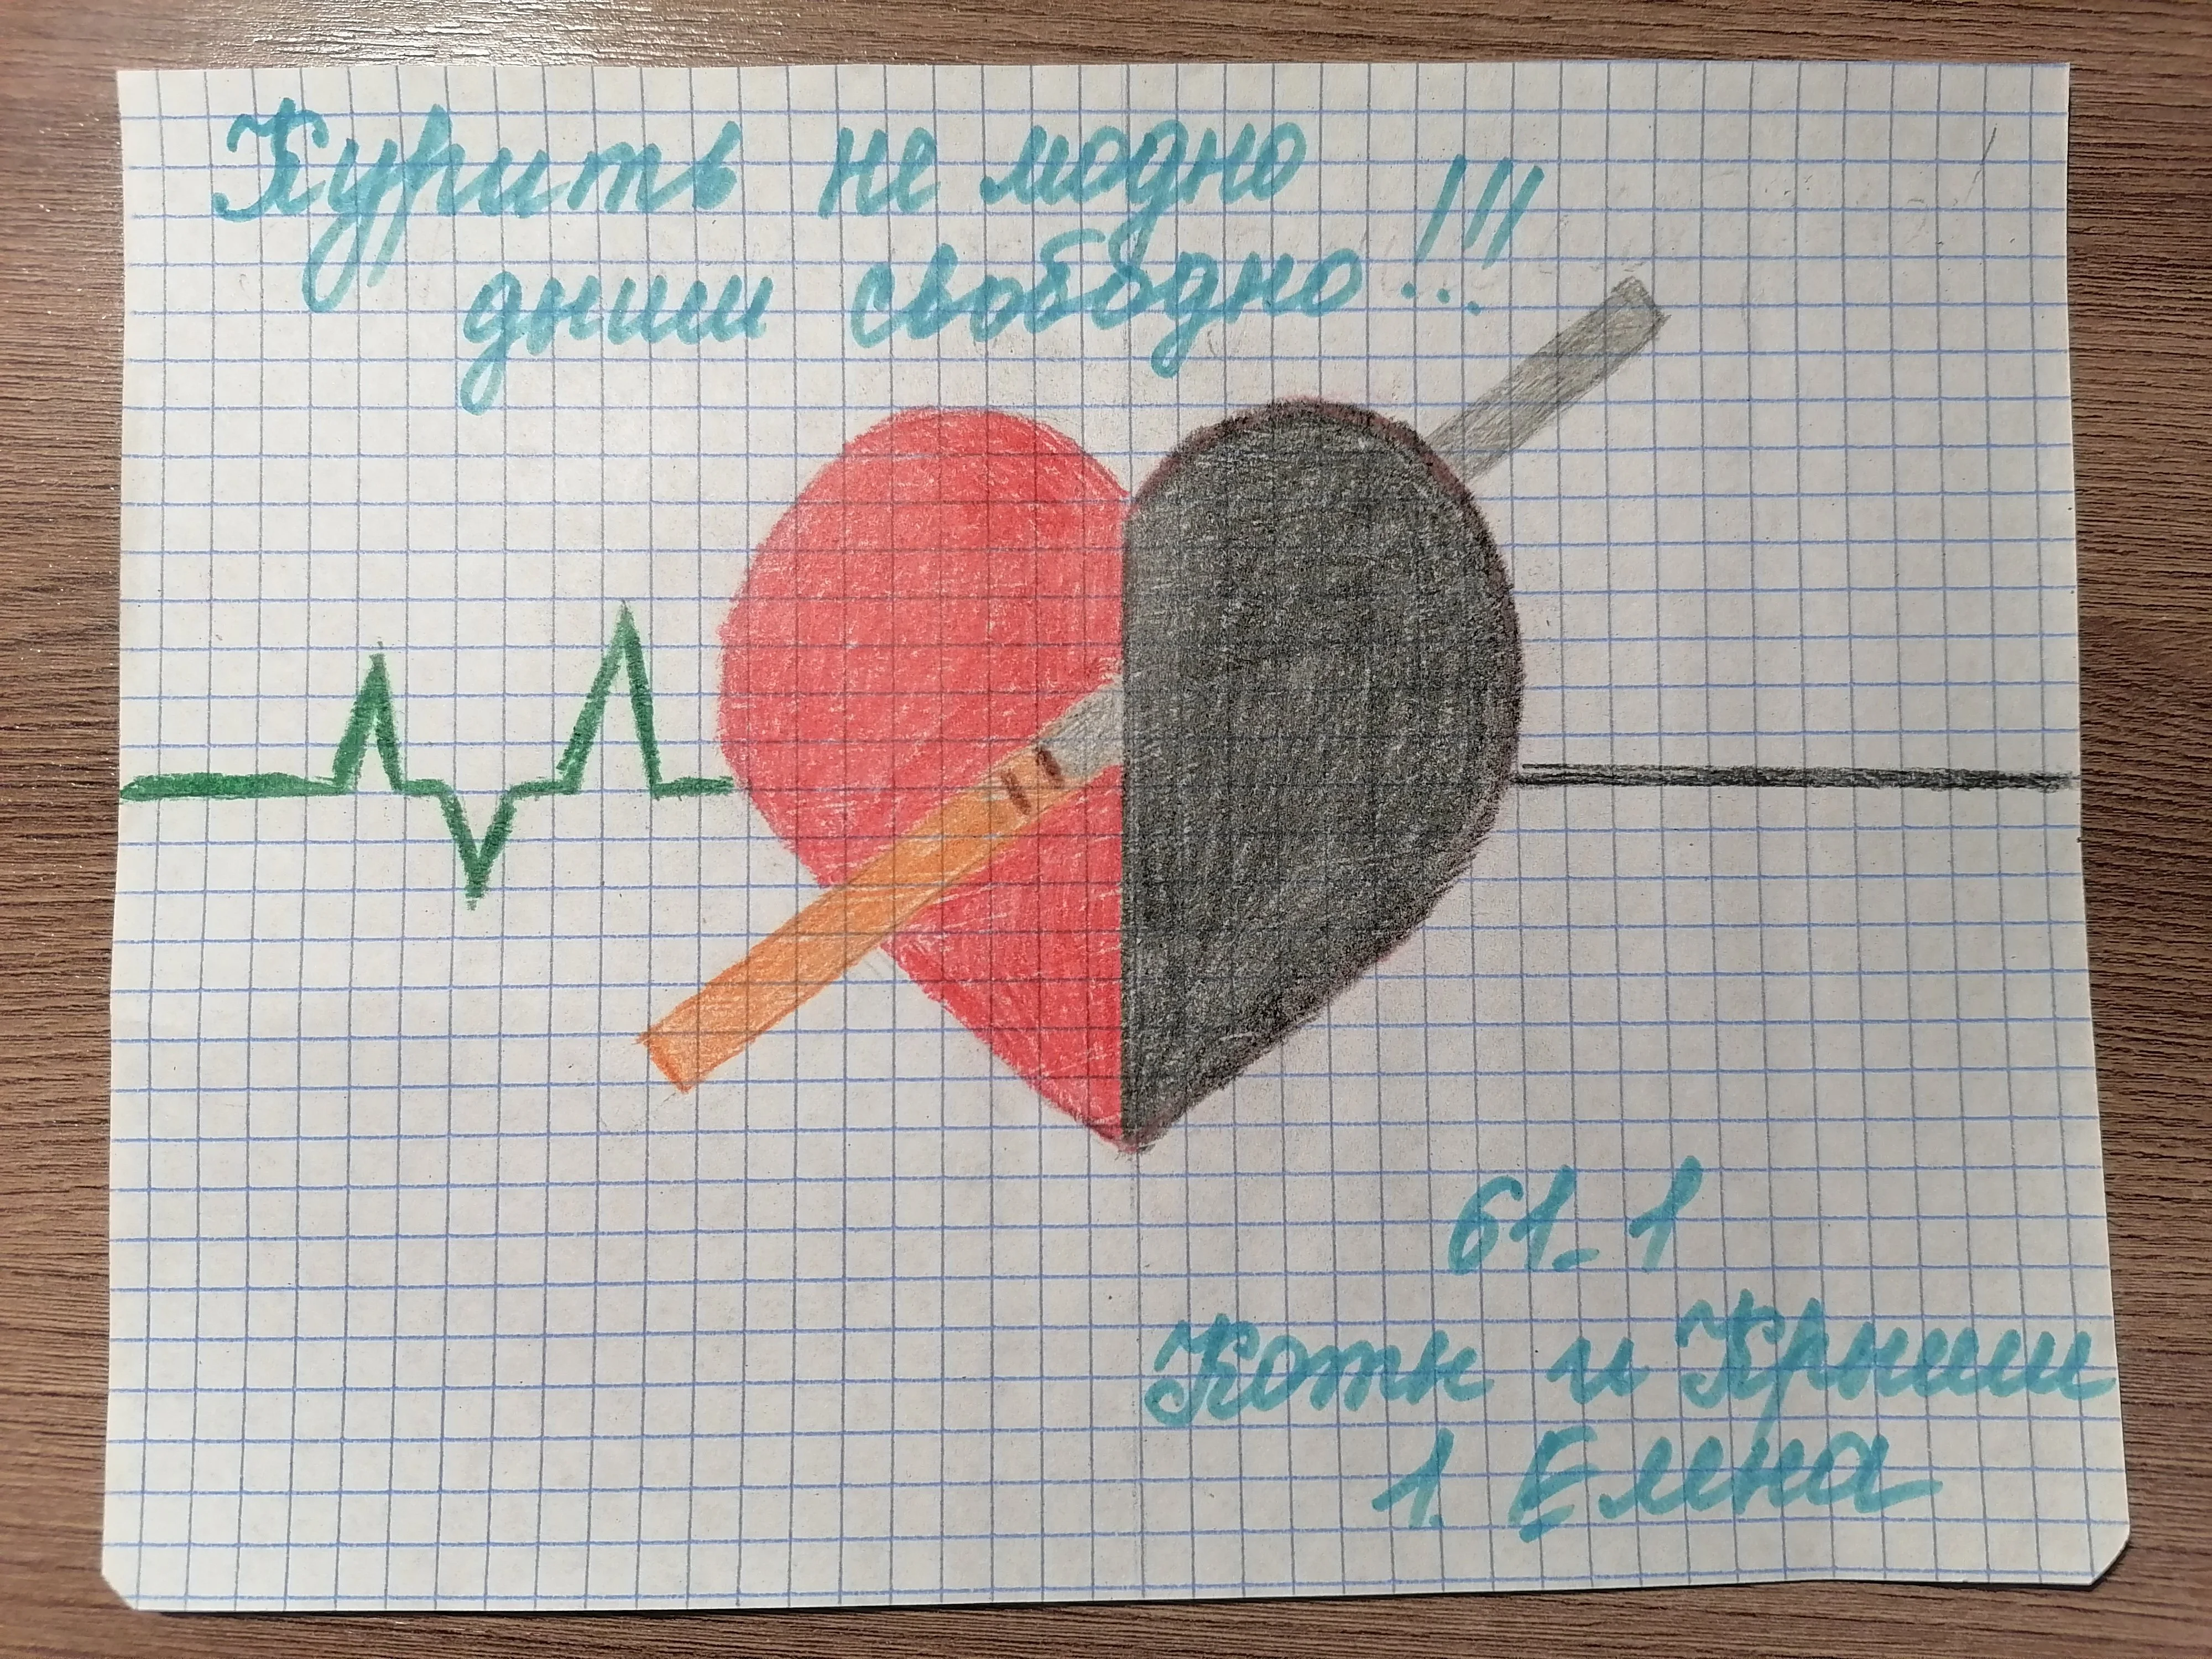 Курить не модно
дыши свободно!!!
61-1
Коты и Крыши
1. Елена